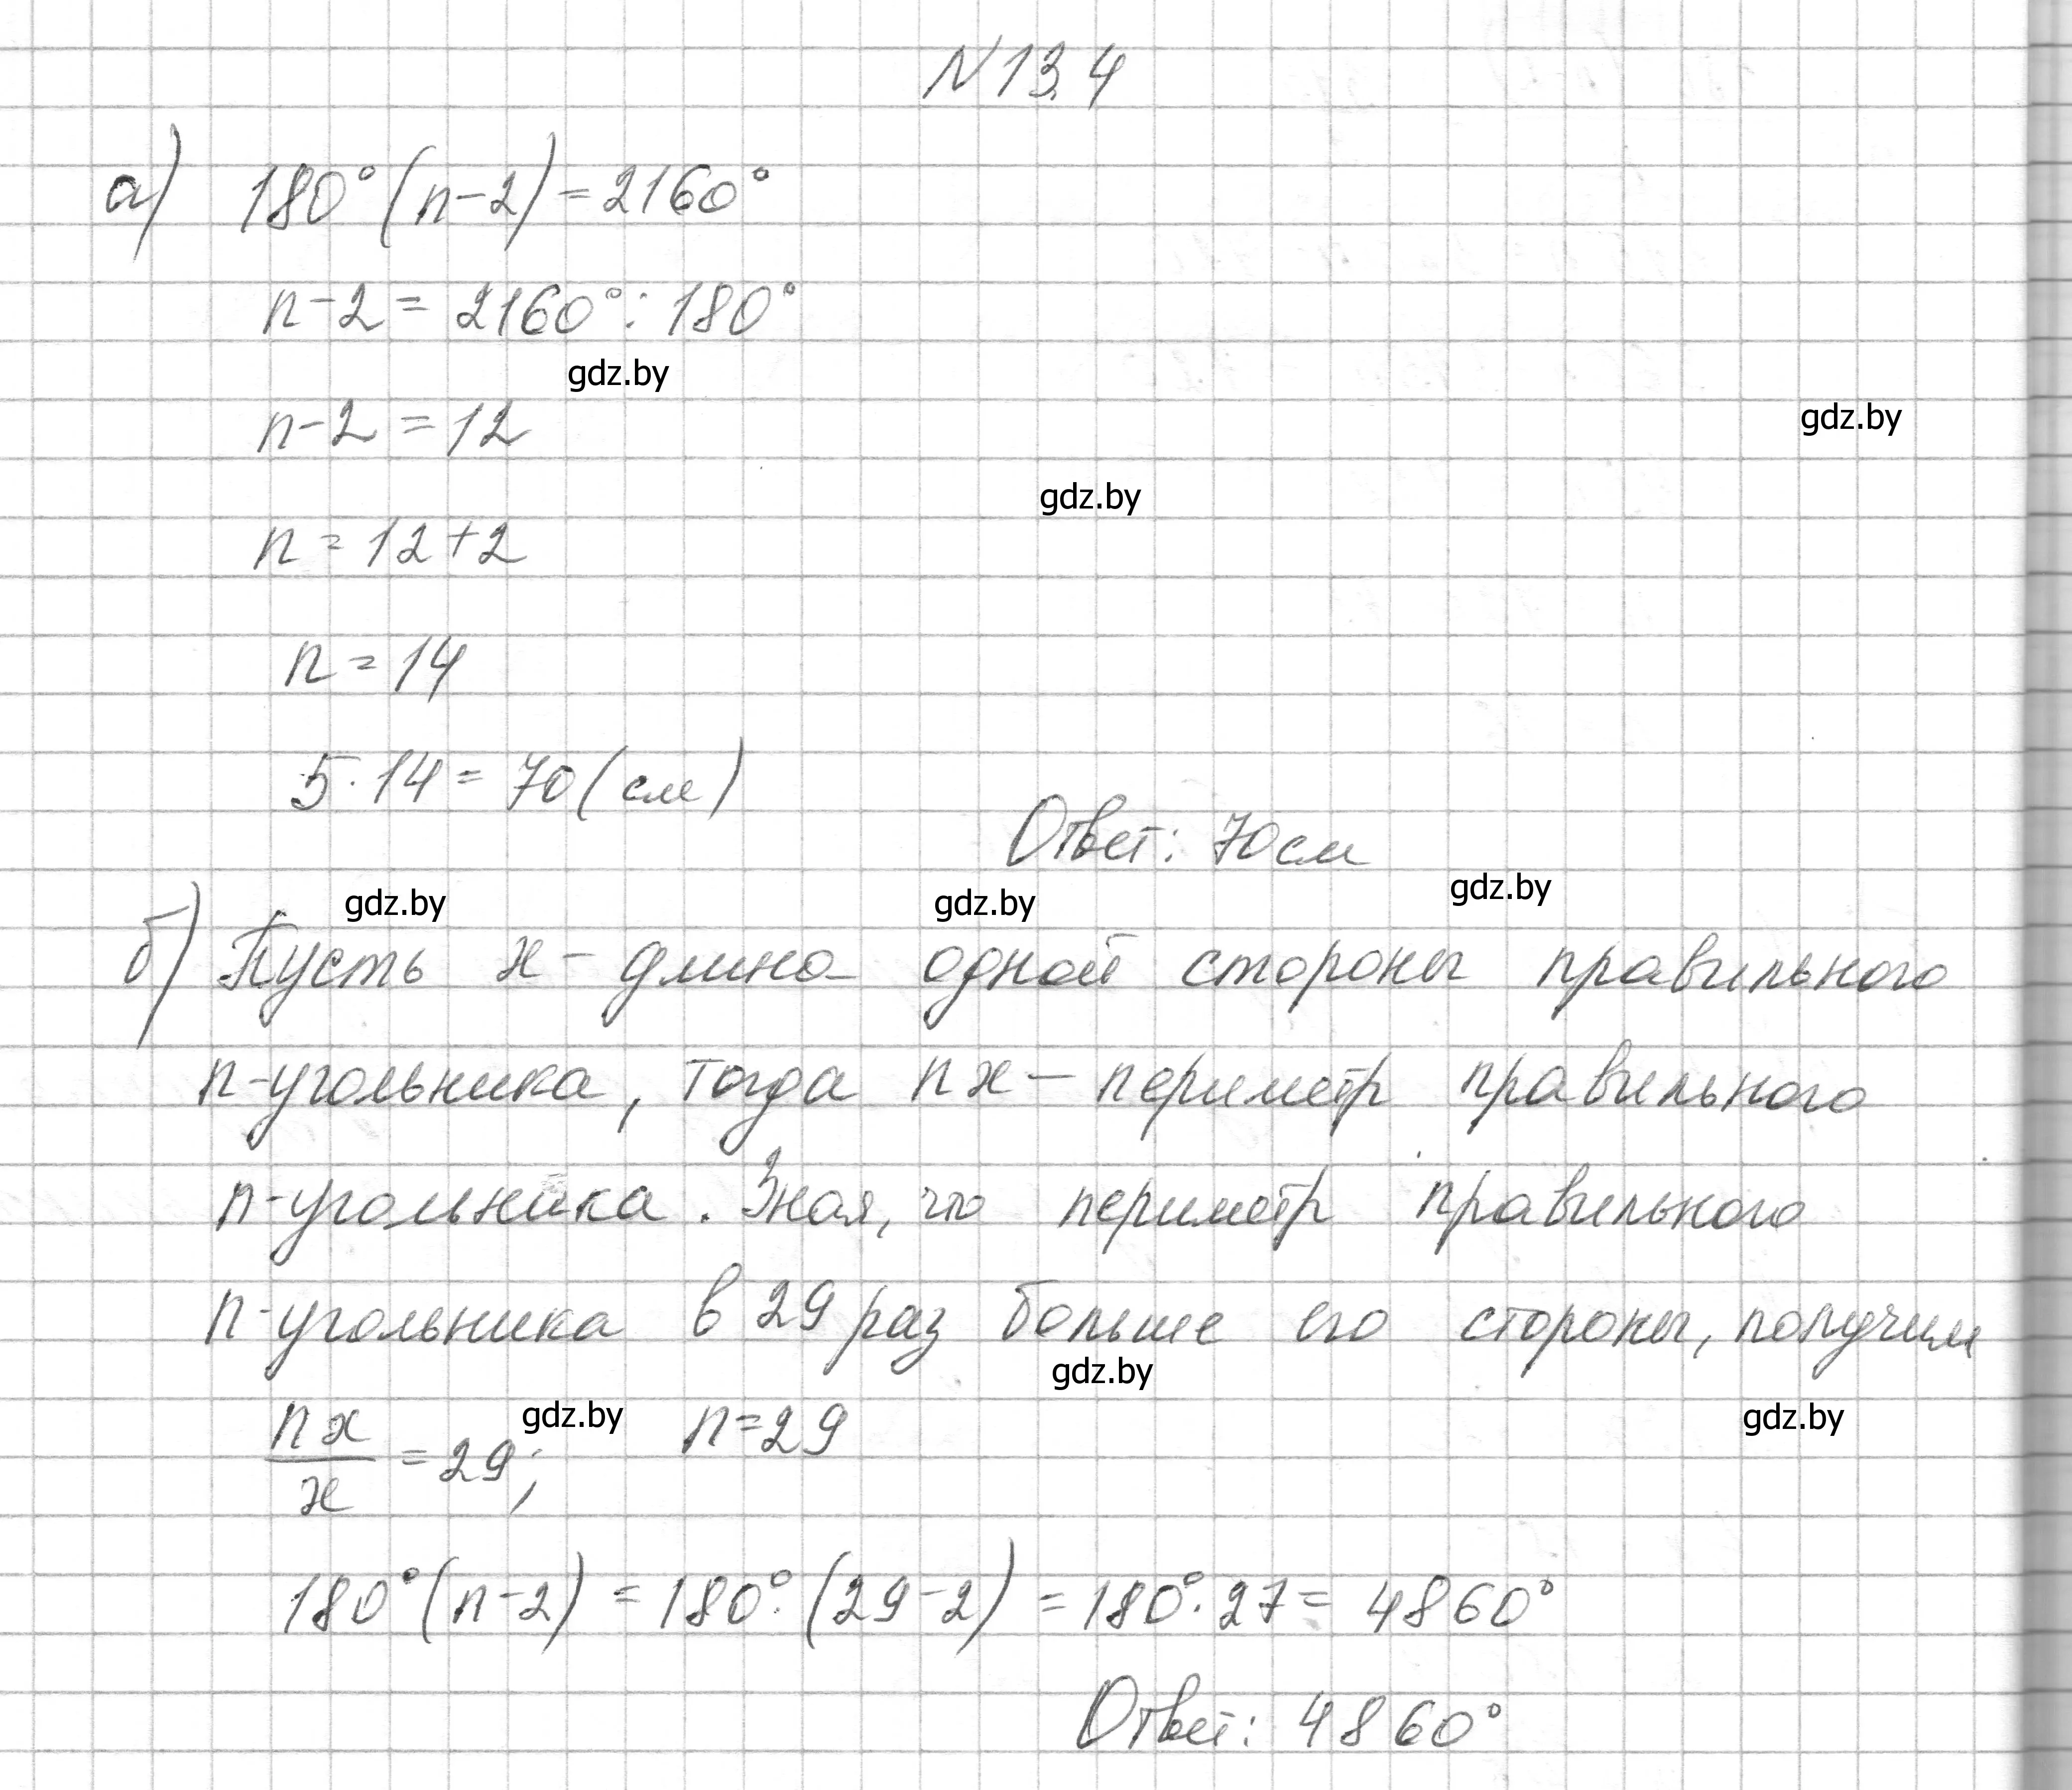 N 13.4
а) 180° (n-2) = 2160°
n-2 = 2160° : 180°
gdz.by
n-2 = 12
gdz.by
gdz.by
n = 12+2
n = 14
5 · 14 = 70 (см)
Ответ: 70 см
gdz.by gdz.by gdz.by
б) Пусть x - длина одной стороны правильного
n-угольника, тогда nx - периметр правильного
n-угольника. Зная, что периметр правильного
n-угольника в 29 раз больше его стороны, получим
gdz.by
nx/x = 29; gdz.by n = 29 gdz.by
180° (n-2) = 180° · (29-2) = 180° · 27 = 4860°
Ответ: 4860°